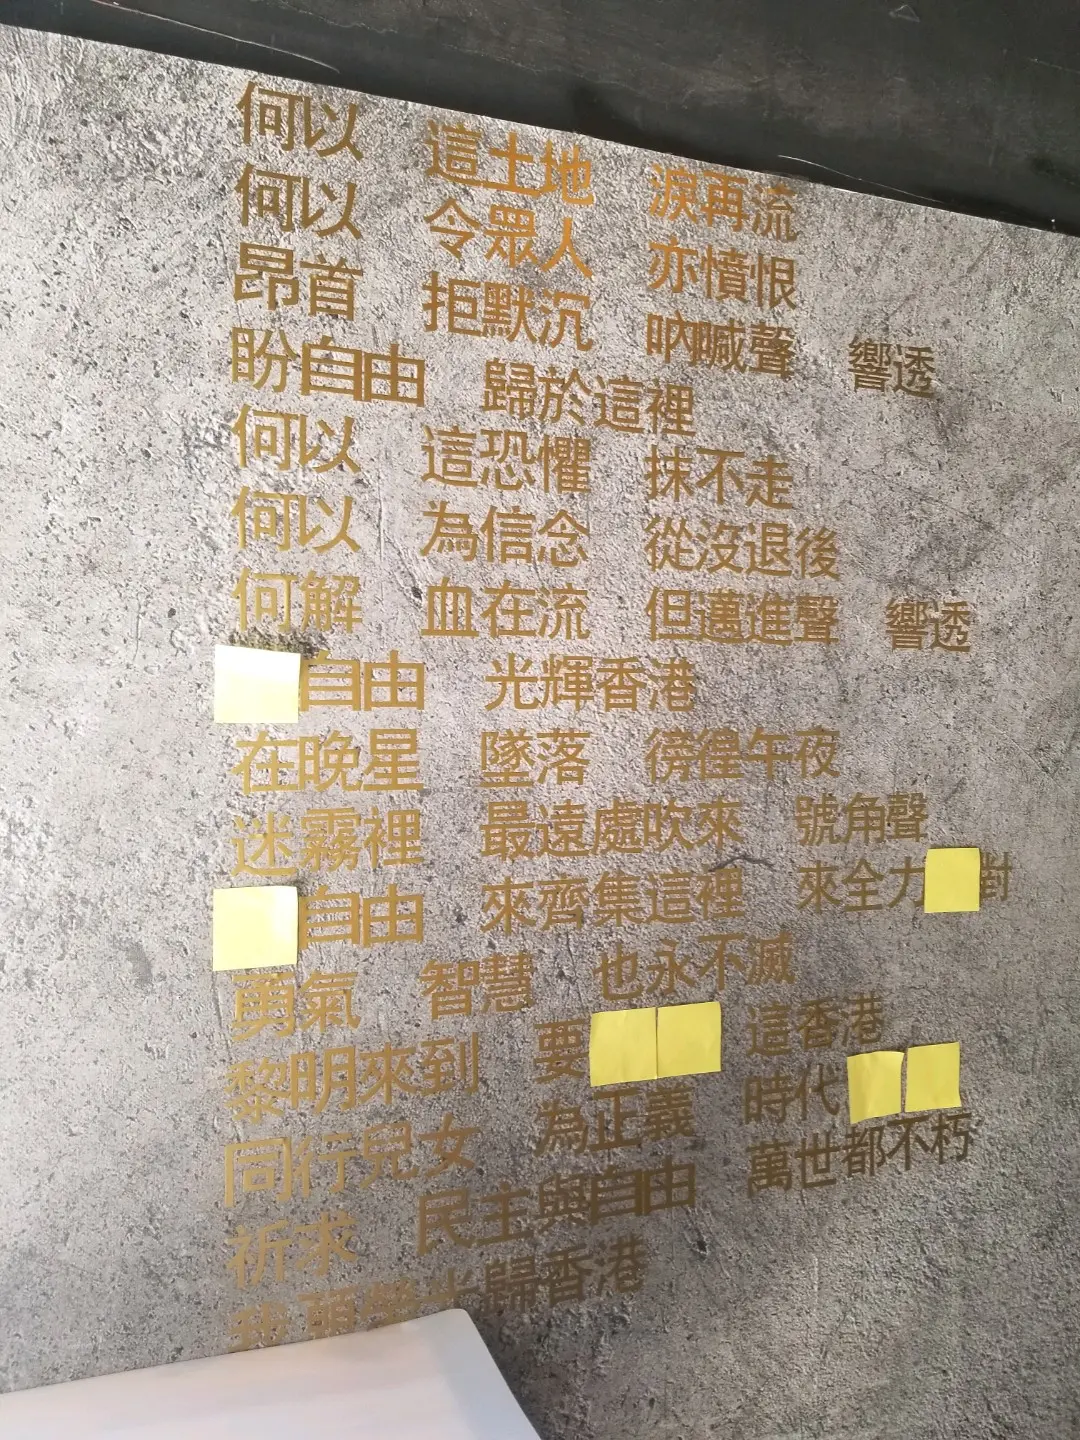 何以 這土地 淚再流
何以 令眾人 亦憤恨
昂首 拒默沉 吶喊聲 響透
盼自由 歸於這裡
何以 這恐懼 抹不走
何以 為信念 從沒退後
何解 血在流 但邁進聲 響透
自由 光輝香港
在晚星 墜落 徬徨午夜
迷霧裡 最遠處吹來 號角聲
自由 來齊集這裡 來全力 對
勇氣 智慧 也永不滅
黎明來到 要 這香港
同行兒女 為正義 時代
祈求 民主與自由 萬世都不朽
我願榮光歸香港